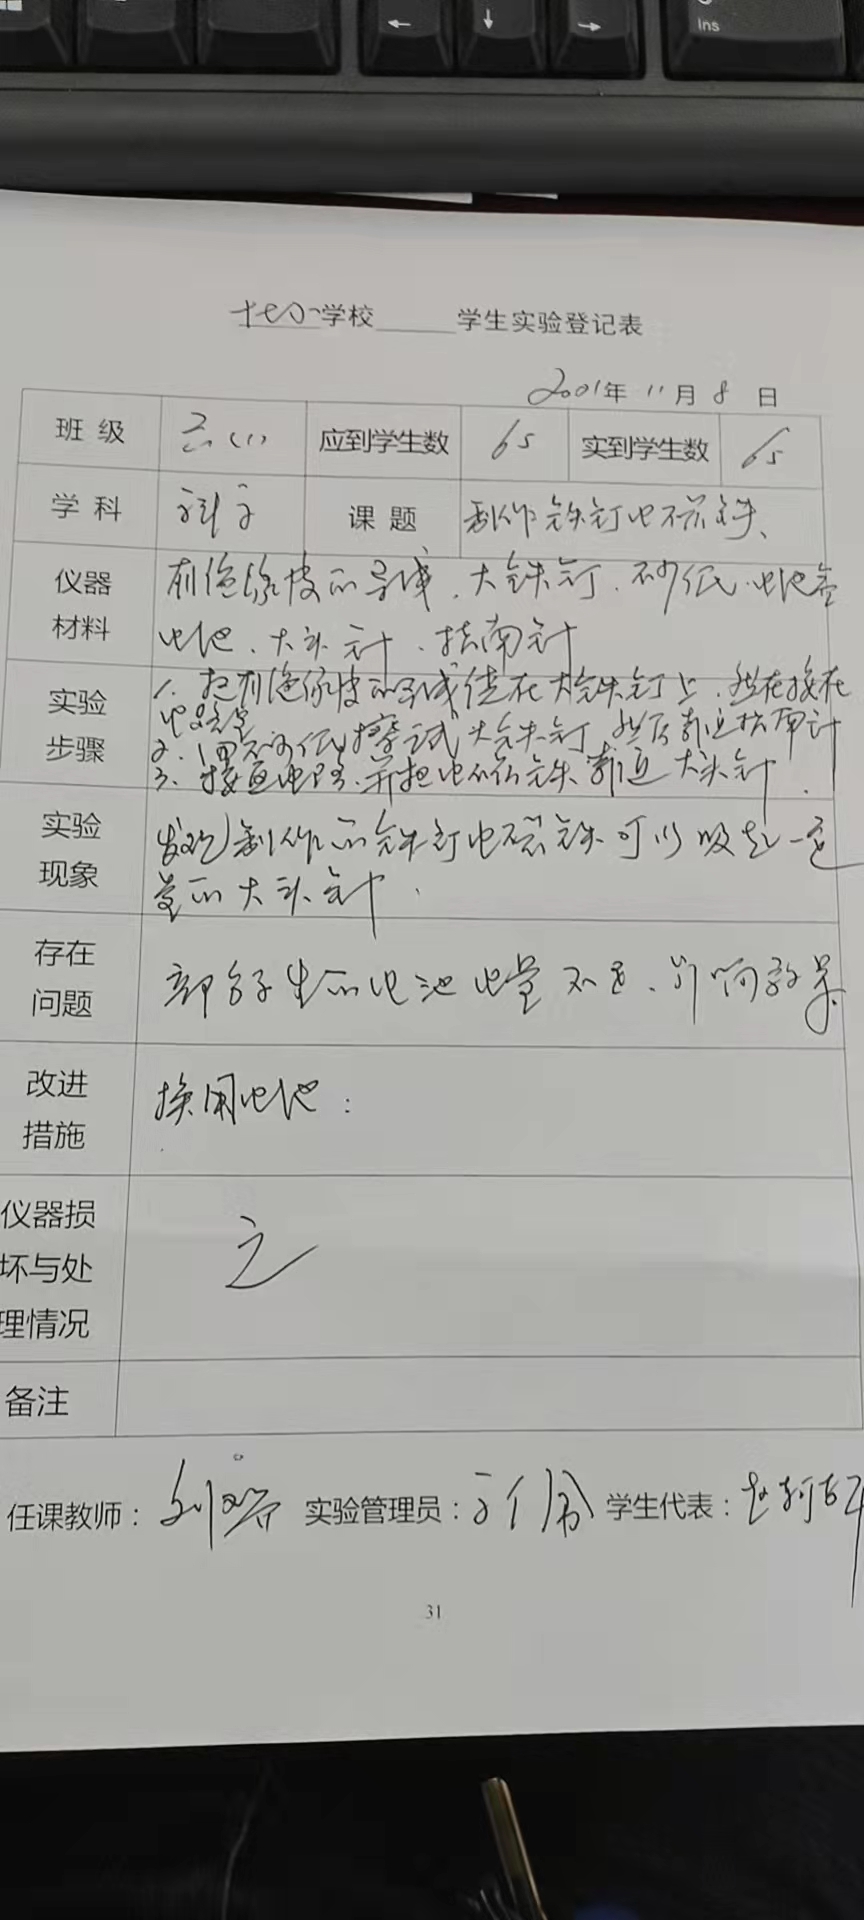 Ins
学校 学生实验登记表
2001年 11月 8 日
班 级 六(1) 应到学生数 65 实到学生数 65
学 科 科学 课 题 制作铁钉电磁铁、
仪器材料 有绝缘皮的导线、大铁钉、砂纸、电池盒
电池、大头针、指南针
实验步骤 1、把有绝缘皮的导线绕在大铁钉上,然后接在
2、用砂纸擦试大铁钉,然后靠近指南针
3、接通电路,并把电磁铁靠近大头针.
实验现象 发现制作的铁钉电磁铁可以吸起一定
量的大头针.
存在问题 部分学生的电池电量不足、影响效果
改进措施 换用电池:
仪器损坏与处理情况 无
备注
任课教师: 实验管理员: 学生代表:
31